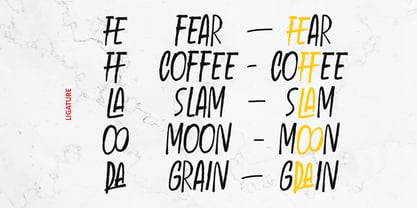 LIGATURE
FE FEAR — FEAR
FF COFFEE - COFFEE
LA SLAM — SLAM
OO MOON - MOON
DA GRAIN — GDAIN